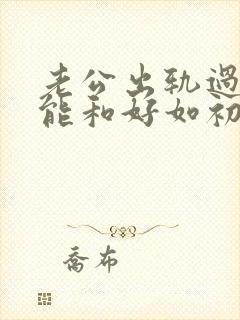 老公出轨过
能和好如初
乔布